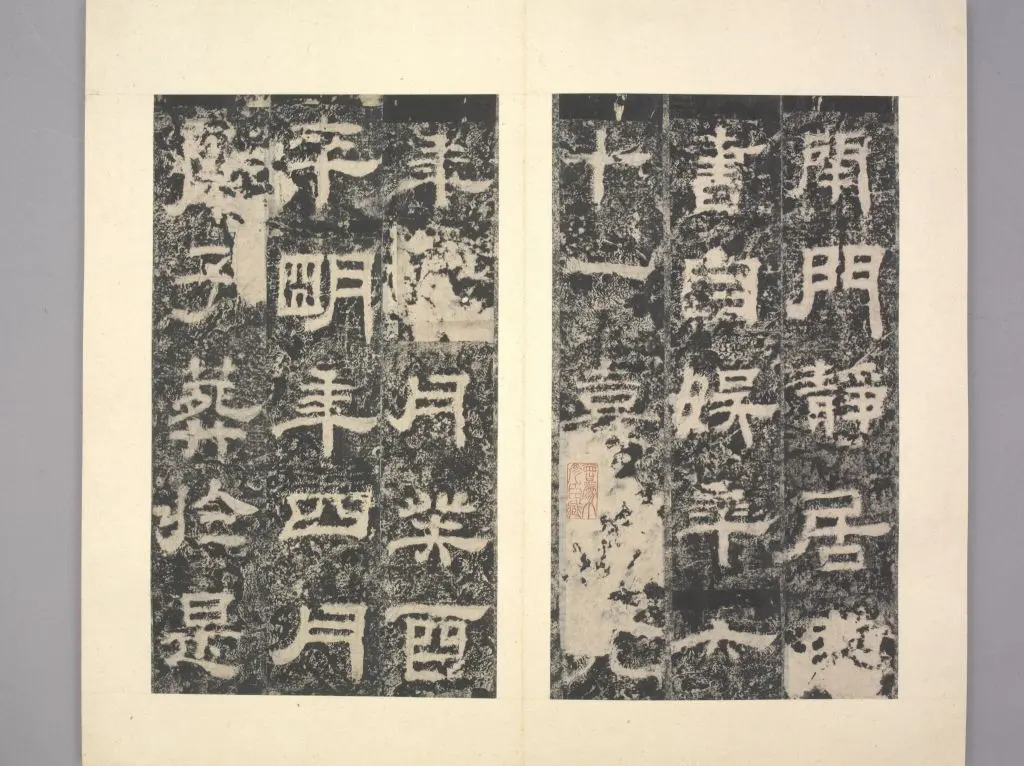 閉門靜居琴
書自娛年六
十一熹元
年月癸酉
卒明年四月
庚子葬於是